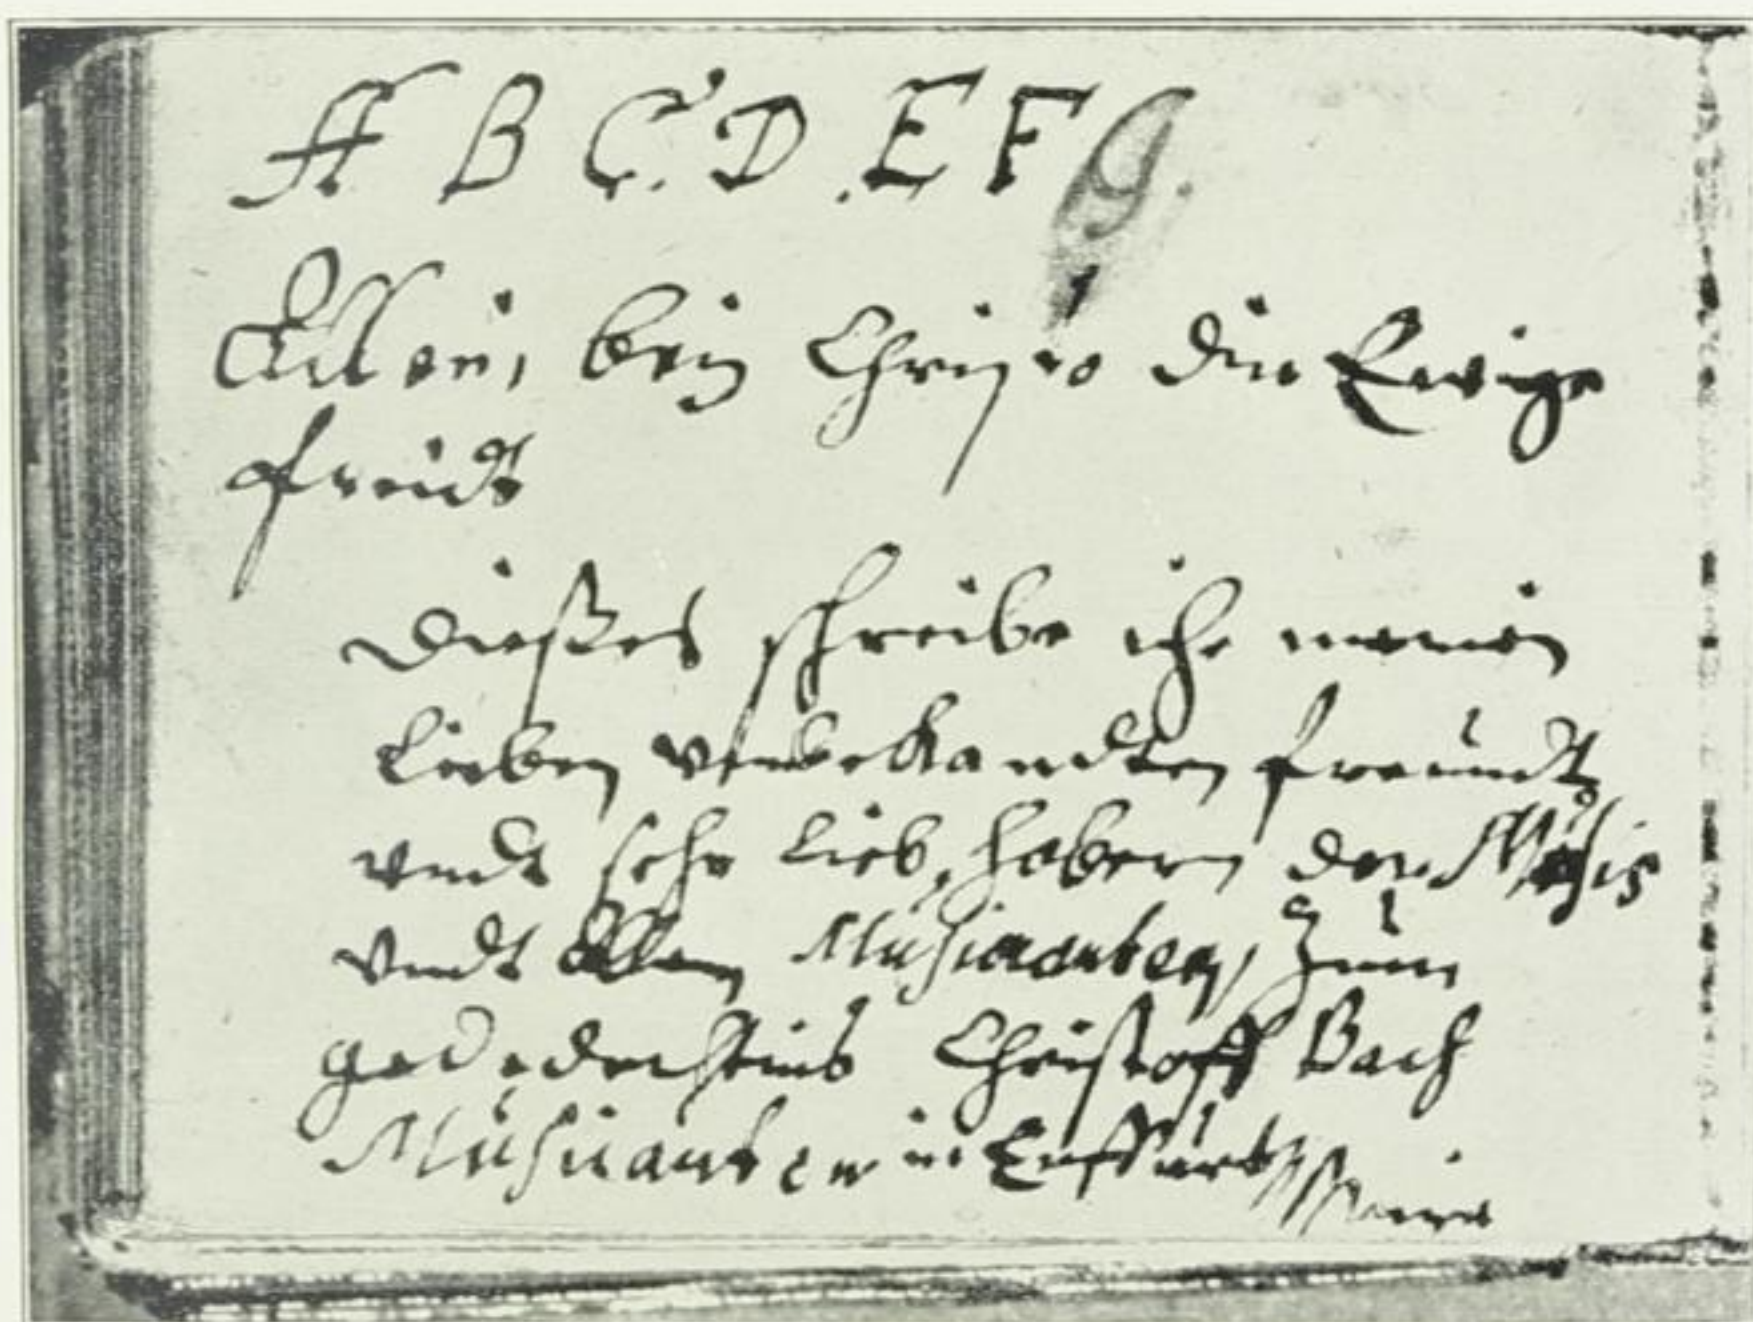 A B C D E F G.
Allein, bey Christo die Ewige
freudt
Dießes schreibe ich meinen
lieben unbekandten freundt
undt sehr lieb, habern der Music
undt allen Musicanten, Zum
Christoff Bach
Musicanten in Erffurt